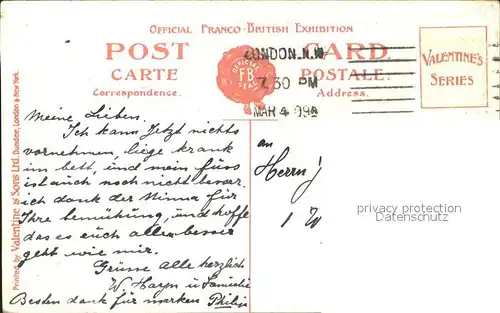 OFFICIAL FRANCO-BRITISH EXHIBITION
POST CARD
CARTE POSTALE.
Correspondence. Address.
OFFICIAL
FB
SEAL
LONDON. N.W
7.30 PM
MAR 4 09
VALENTINE'S
SERIES
Printed by Valentine & Sons Ltd. Dundee, London & New York.
Meine Lieben.
Ich kann Jetzt nichts
vornehmen, liege krank
im bett, und mein fuss
ist auch noch nicht besser.
ich dank der Minna für
Ihre bemühung, und hoffe
das es euch allen besser
geht wie mir.
Grüsse alle herzlich
W u Familie
Besten dank für marken Philip
an
Herrn J
privacy protection
Datenschutz